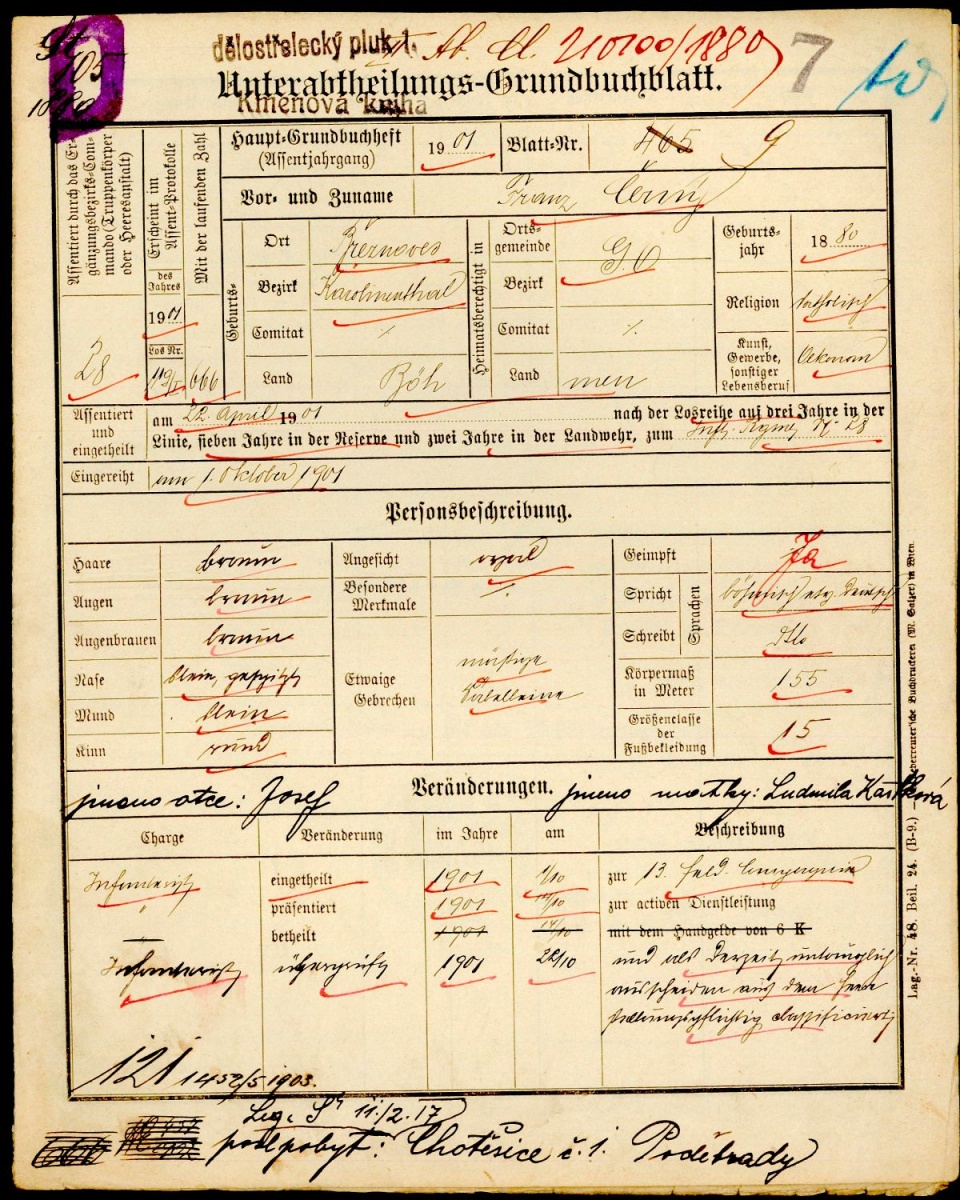 dělostřelecký pluk 1.
Unterabtheilungs-Grundbuchblatt.
Kmenová kniha
7
105
Haupt-Grundbuchheft
(Assentjahrgang)
1901
Blatt-Nr.
465 9
Vor- und Zuname
Franz Černý
Assentiert durch das Ergänzungsbezirks-Commando (Truppenkörper oder Heeresanstalt)
28
Erscheint im Assent-Protokolle
des Jahres
1901
Los Nr.
Mit der laufenden Zahl
666
Geburts-
Ort
Bezirk
Karolinenthal
Comitat
⁒
Land
Böh
Heimatsberechtigt in
Ortsgemeinde
G. O
Bezirk
Comitat
⁒
Land
men
Geburtsjahr
1880
Religion
katholisch
Kunst, Gewerbe, sonstiger Lebensberuf
Oekonom
Assentiert und eingetheilt
am 22. April 1901 nach der Losreihe auf drei Jahre in der
Linie, sieben Jahre in der Reserve und zwei Jahre in der Landwehr, zum Inft. Regmt. Nr 28
Eingereiht
am 1. Oktober 1901
Personsbeschreibung.
Haare
braun
Augen
braun
Augenbrauen
braun
Nase
klein, gespitzt
Mund
klein
Kinn
rund
Angesicht
oval
Besondere Merkmale
⁒
Etwaige Gebrechen
mäßige
Säbelbeine
Geimpft
Ja
Sprachen
Spricht
böhmisch etw. deutsch
Schreibt
dtto
Körpermaß in Meter
155
Größenclasse der Fußbekleidung
15
Veränderungen.
jmeno otce: Josef
jmeno matky: Ludmila
Charge
Veränderung
im Jahre
am
Beschreibung
Infanterist
eingetheilt
1901
1/10
zur 13. Feld-Compagnie
"
präsentiert
1901
zur activen Dienstleistung
betheilt
1901
mit dem Handgelde von 6 K
Infanterist
überprüft
1901
22/10
und als derzeit untauglich
ausscheiden aus dem Heere
stellungspflichtig classificiert
121
1903.
Leg. 11./2. 17
pobyt: Chotěšice č. 1. Poděbrady
Lag.-Nr. 48. Beil. 24. (B-9.)
Buchdruckerei (M. Salzer) in Wien.